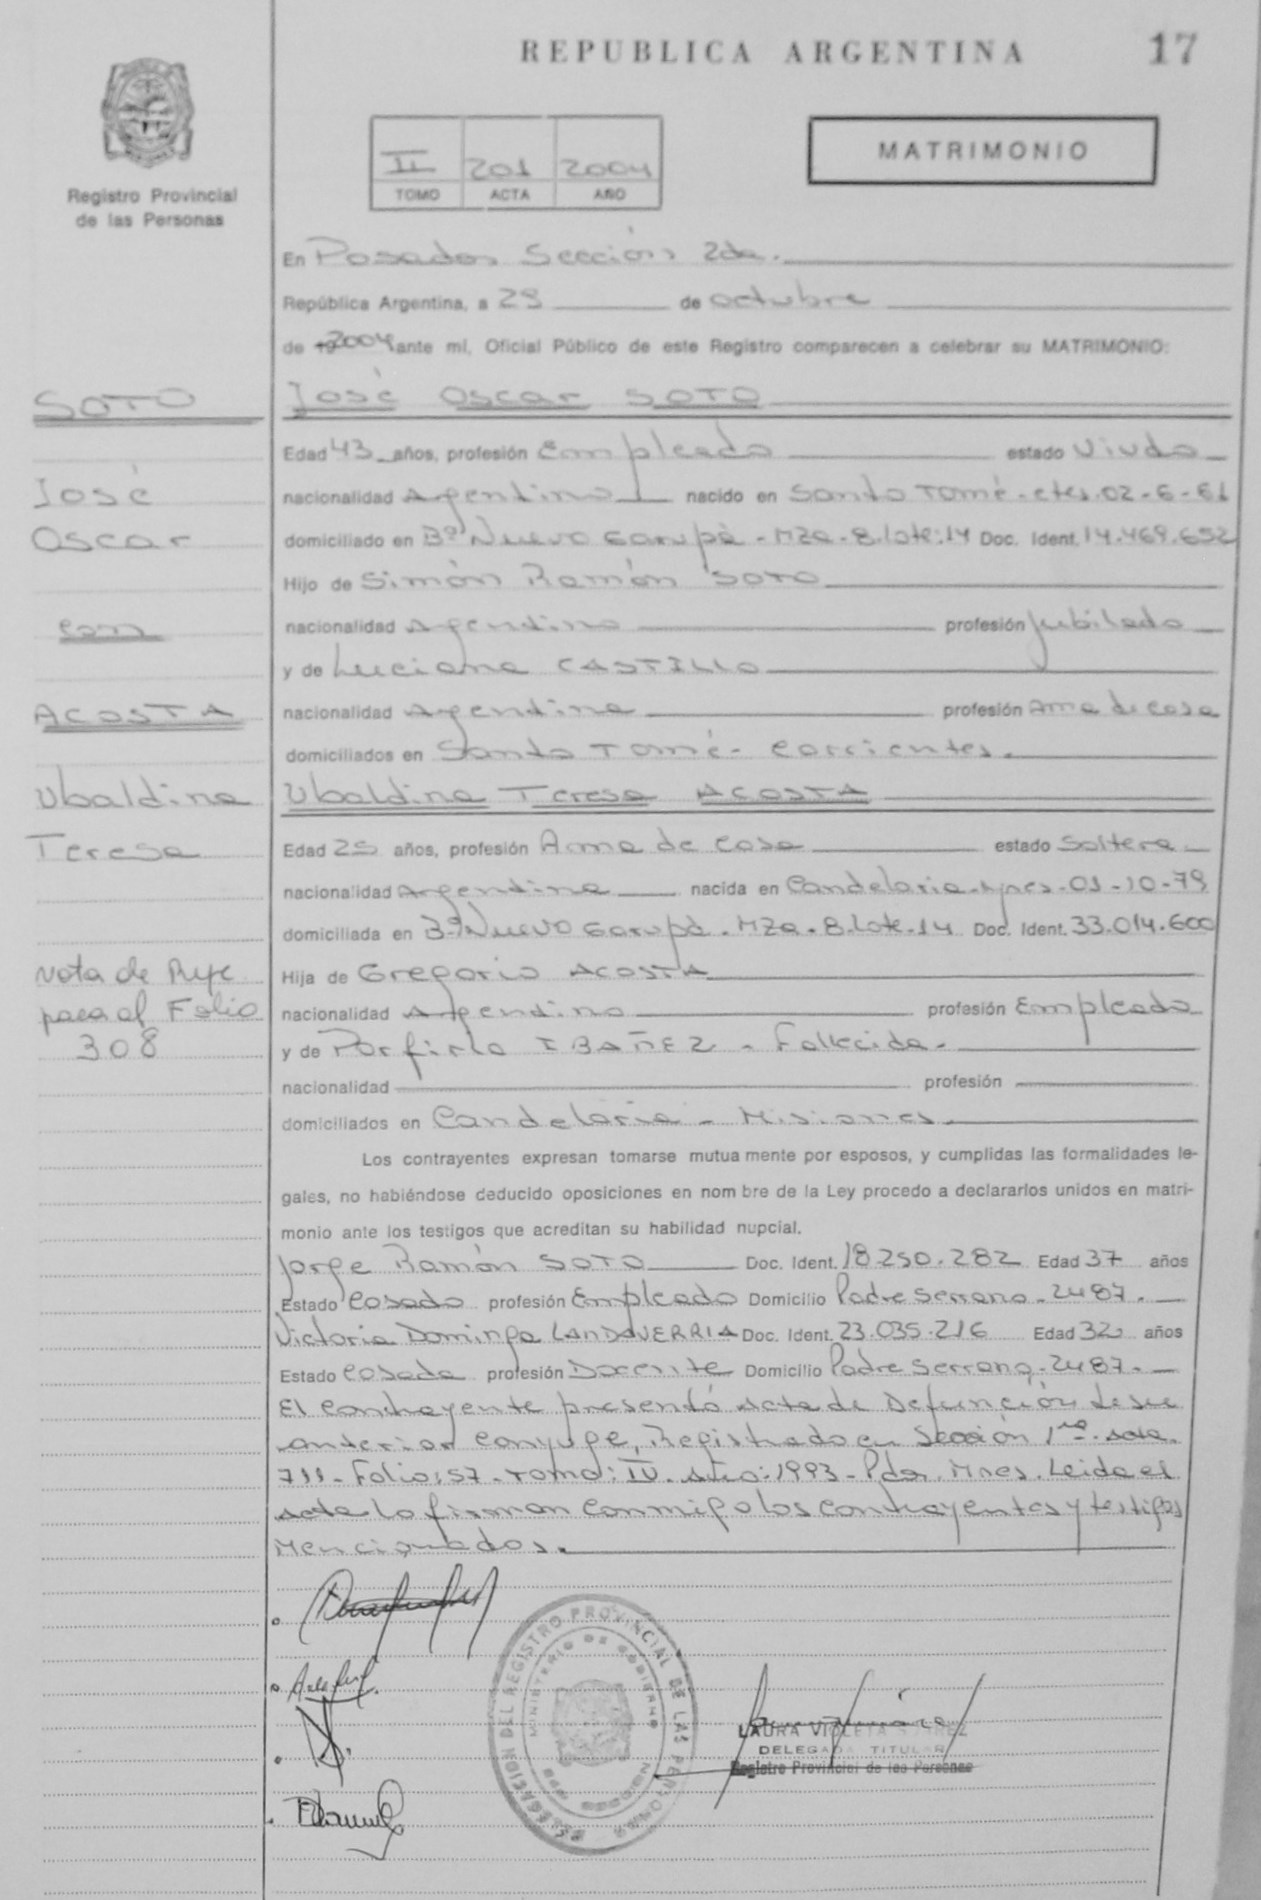 REPUBLICA ARGENTINA
17
Registro Provincial
de las Personas
II 201 2004
TOMO ACTA AÑO
MATRIMONIO
En Posadas Sección 2da.
República Argentina, a 29 de octubre
de 2004 ante mí, Oficial Público de este Registro comparecen a celebrar su MATRIMONIO:
SOTO
José
Oscar
con
ACOSTA
Ubaldina
Teresa
Nota de
pasa al Folio
308
José Oscar SOTO
Edad 43 años, profesión Empleado estado Viudo
nacionalidad Argentino nacido en Santo Tomé - ctes. 02-6-61
domiciliado en Bº Nuevo Garupá - Mza - 8. lote: 14 Doc. Ident. 14.469.652
Hijo de Simón Ramón SOTO
nacionalidad Argentino profesión Jubilado
y de Luciana CASTILLO
nacionalidad Argentina profesión Ama de casa
domiciliados en Santo Tomé - Corrientes.
Ubaldina Teresa ACOSTA
Edad 25 años, profesión Ama de casa estado Soltera
nacionalidad Argentina nacida en Candelaria - Mnes - 01-10-79
domiciliada en Bº Nuevo Garupá - Mza - 8. lote - 14 Doc. Ident. 33.014.600
Hija de Gregorio ACOSTA
nacionalidad Argentino profesión Empleado
y de Porfiria IBAÑEZ - Fallecida -
nacionalidad profesión
domiciliados en Candelaria - Misiones.
Los contrayentes expresan tomarse mutua mente por esposos, y cumplidas las formalidades le-
gales, no habiéndose deducido oposiciones en nom bre de la Ley procedo a declararlos unidos en matri-
monio ante los testigos que acreditan su habilidad nupcial.
Jorge Ramón SOTO Doc. Ident. 18.250.282 Edad 37 años
Estado Casado profesión Empleado Domicilio Padre Serrano - 2487.
Victoria Dominga LANDAVERRIA Doc. Ident. 23.035.216 Edad 32 años
Estado Casada profesión Docente Domicilio Padre Serrano - 2487.
El contrayente presentó Acta de Defunción de su
anterior conyuge, Registrado en Sección 1ra. Acta
711 - Folio: 57 - Tomo: IV. Año: 1993 - Pdas. Mnes. Leida el
acta la firman conmigo los contrayentes y testigos
Mencionados.
DELEGACION DEL REGISTRO PROVINCIAL DE LAS PERSONAS
MINISTERIO DE GOBIERNO
LAURA VIOLETA
DELEGADA TITULAR
Registro Provincial de las Personas